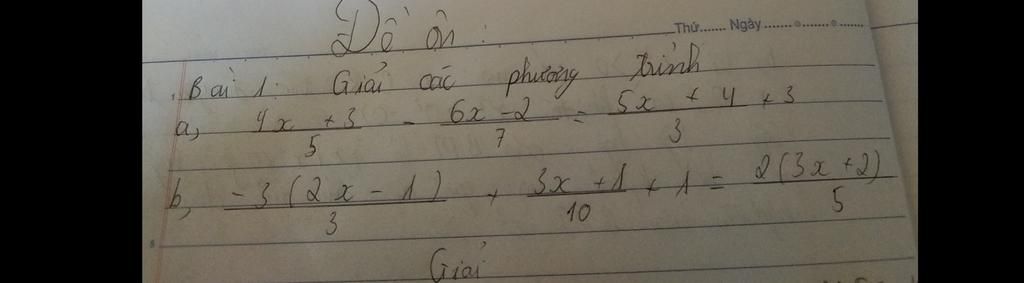 Đề ôn:
Thứ....... Ngày........................
Bài 1: Giải các phương trình
a, 4x + 3 / 5 - 6x - 2 / 7 = 5x + 4 / 3 + 3
b, -3(2x - 1) / 3 + 3x + 1 / 10 + 1 = 2(3x + 2) / 5
Giải